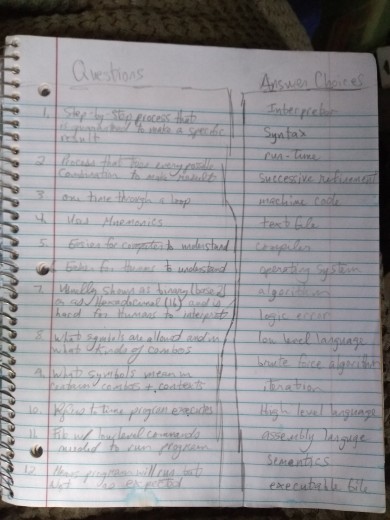 Questions
1. Step-by-step process that
is guaranteed to make a specific
result
2. Process that tries every possible
combination to make result
3. one time through a loop
4. Uses Mnemonics
5. Easier for computer to understand
6. Easier for humans to understand
7. Usually shown as binary (base 2)
or as Hexadecimal (16) and is
hard for humans to interpret
8. What symbols are allowed and in
what kinds of combos
9. What symbols mean in
certain combos + contexts
10. time program executes
11. File w/ low level commands
needed to run program
12. program will run but
not expected
Answer Choices
Interpreter
Syntax
run-time
successive refinement
machine code
text file
compiler
operating system
algorithm
logic error
low level language
brute force algorithm
iteration
High level language
assembly language
semantics
executable file